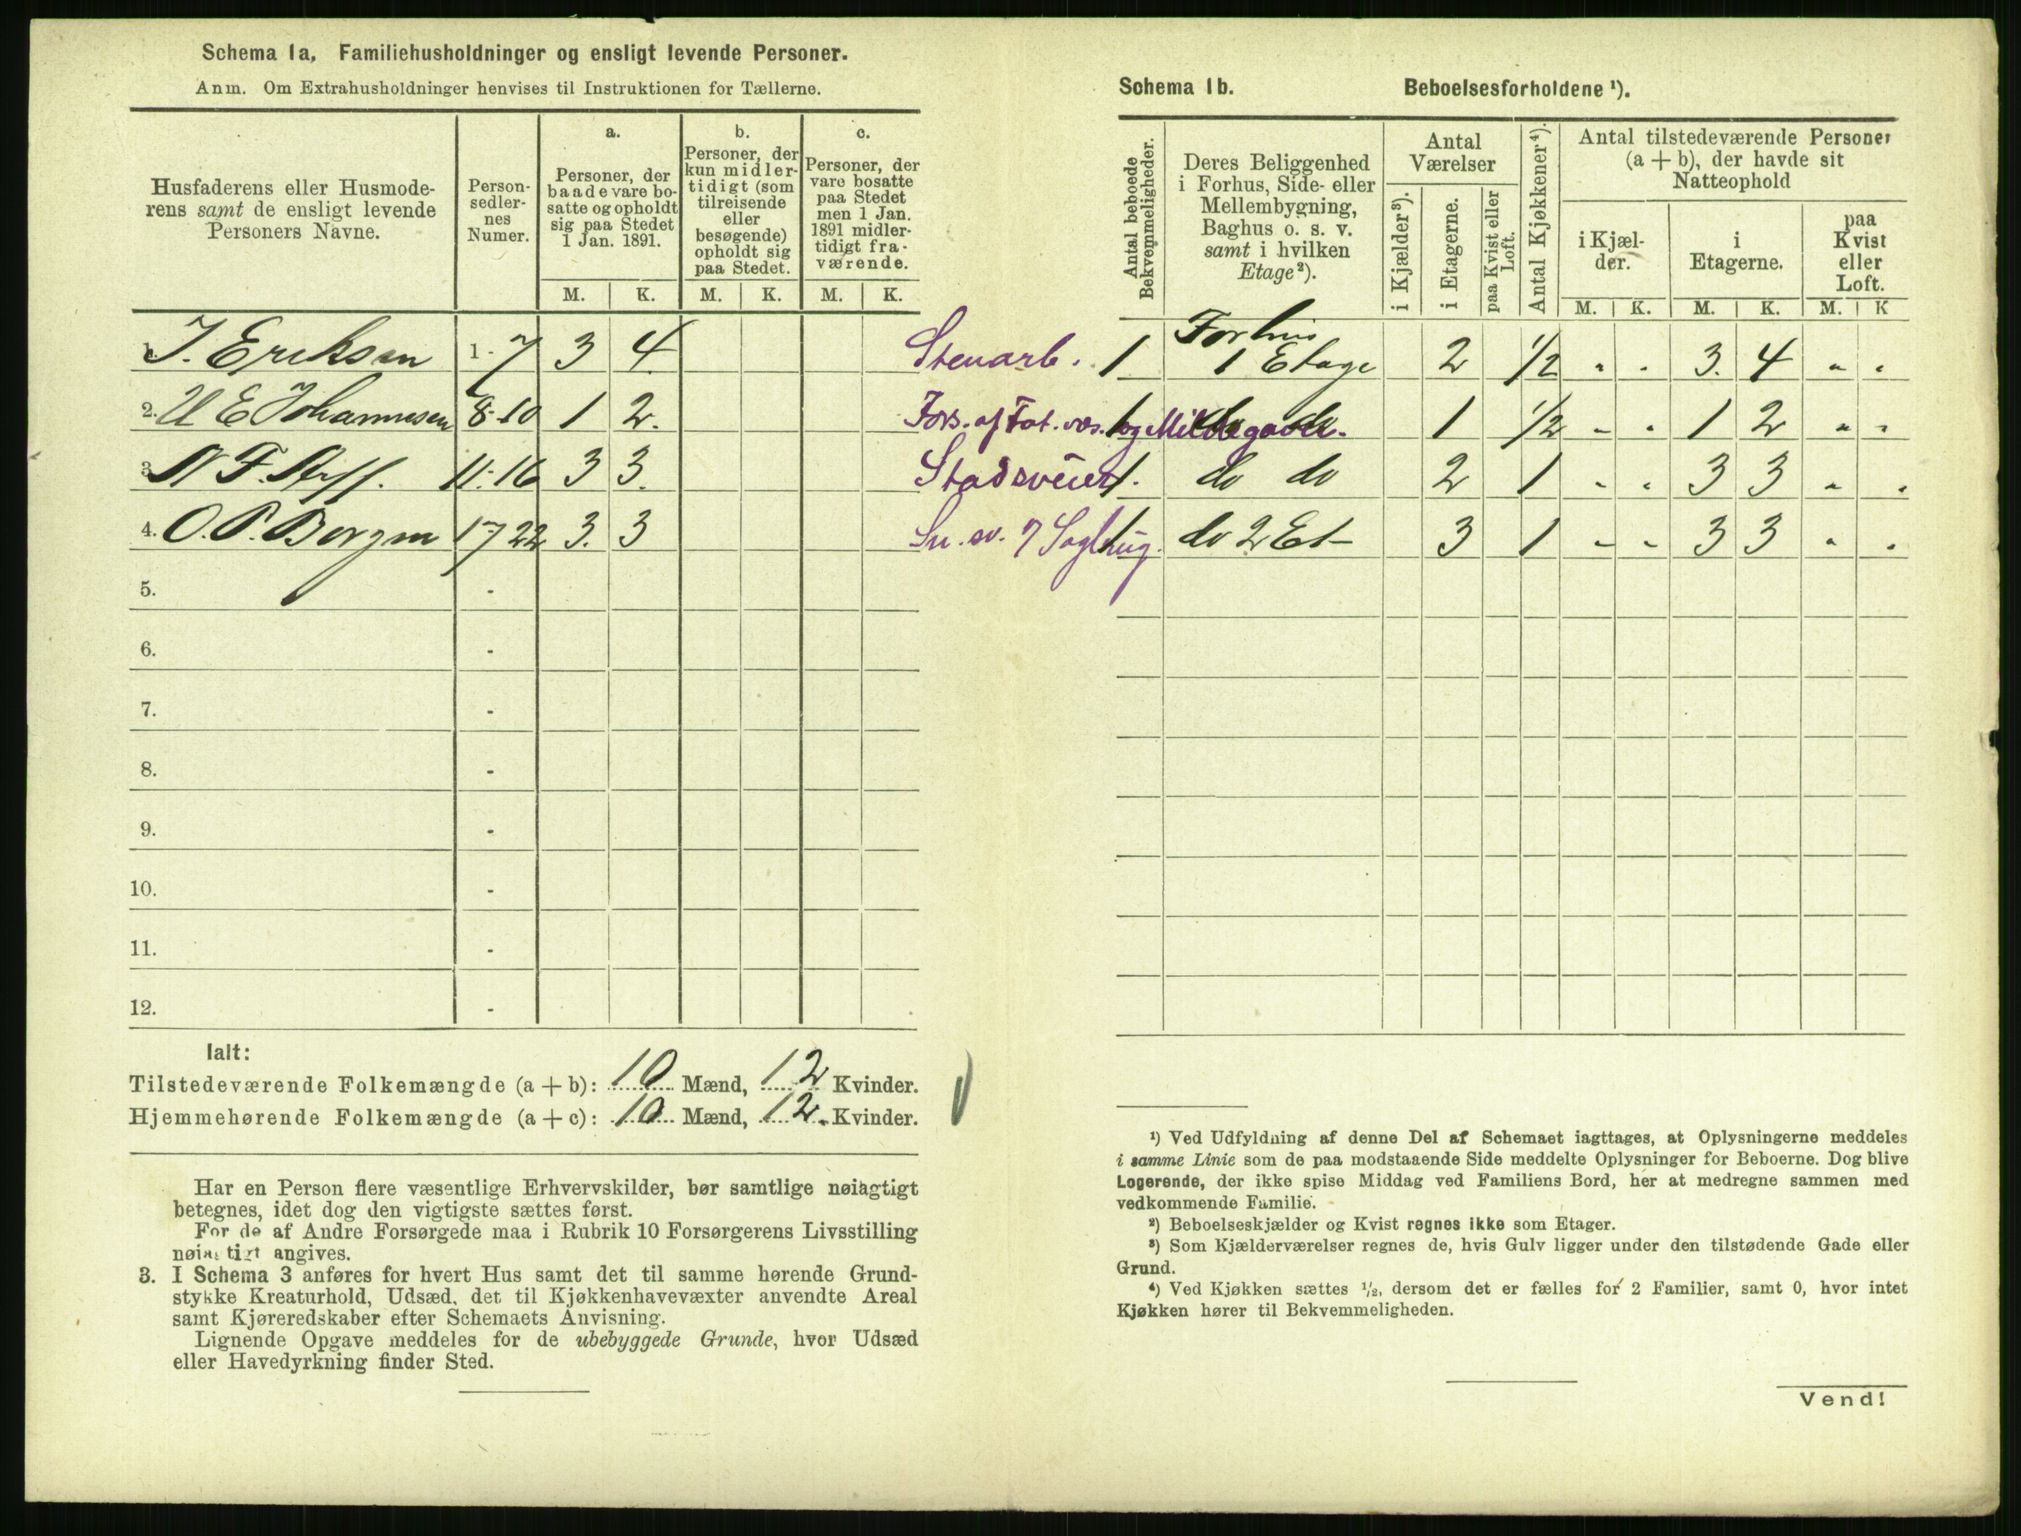 Schema 1a, Familiehusholdninger og ensligt levende Personer.
Anm. Om Extrahusholdninger henvises til Instruktionen for Tællerne.
Husfaderens eller Husmoderens samt de ensligt levende Personers Navne.
Personsedlernes Numer.
a.
Personer, der baade vare bosatte og opholdt sig paa Stedet 1 Jan. 1891.
b.
Personer, der kun midlertidigt (som tilreisende eller besøgende) opholdt sig paa Stedet.
c.
Personer, der vare bosatte paa Stedet men 1 Jan. 1891 midlertidigt fraværende.
M. K. M. K. M. K.
1. J. Eriksen 1-7 3 4
2. U E Johannesen 8-10 1 2.
3. N F. 11-16 3 3.
4. O. P. Borgen 17 22 3. 3
5. -
6. -
7. -
8. -
9. -
10. -
11. -
12. -
Ialt:
Tilstedeværende Folkemængde (a + b): 10 Mænd, 12 Kvinder.
Hjemmehørende Folkemængde (a + c): 10 Mænd, 12. Kvinder.
Har en Person flere væsentlige Erhvervskilder, bør samtlige nøiagtigt
betegnes, idet dog den vigtigste sættes først.
For de af Andre Forsørgede maa i Rubrik 10 Forsørgerens Livsstilling
nøiagtigt angives.
3. I Schema 3 anføres for hvert Hus samt det til samme hørende Grund-
stykke Kreaturhold, Udsæd, det til Kjøkkenhavevæxter anvendte Areal
samt Kjøreredskaber efter Schemaets Anvisning.
Lignende Opgave meddeles for de ubebyggede Grunde, hvor Udsæd
eller Havedyrkning finder Sted.
Schema 1b. Beboelsesforholdene ¹).
Antal beboede Bekvemmeligheder.
Deres Beliggenhed i Forhus, Side- eller Mellembygning, Baghus o. s. v. samt i hvilken Etage ²).
Antal Værelser
i Kjælder ³).
i Etagerne.
paa Kvist eller Loft.
Antal Kjøkkener ⁴).
Antal tilstedeværende Personer (a + b), der havde sit Natteophold
i Kjælder.
i Etagerne.
paa Kvist eller Loft.
M. K. M. K. M. K
Stenarb. 1 Forhus 1 Etage 2 1/2 " " 3. 4 " "
Fors. af Fat. væs. og Mildegaver. 1 do do 1 1/2 " " 1 2 " "
Stadsveier. 1 do do 2 1 " " 3 3 " "
Sn. sv. 7 Sagbrug. 1 do 2 Et 3 1 " " 3 3 " "
¹) Ved Udfyldning af denne Del af Schemaet iagttages, at Oplysningerne meddeles
i samme Linie som de paa modstaaende Side meddelte Oplysninger for Beboerne. Dog blive
Logerende, der ikke spise Middag ved Familiens Bord, her at medregne sammen med
vedkommende Familie.
²) Beboelseskjælder og Kvist regnes ikke som Etager.
³) Som Kjælderværelser regnes de, hvis Gulv ligger under den tilstødende Gade eller
Grund.
⁴) Ved Kjøkken sættes ¹/₂, dersom det er fælles for 2 Familier, samt 0, hvor intet
Kjøkken hører til Bekvemmeligheden.
Vend!